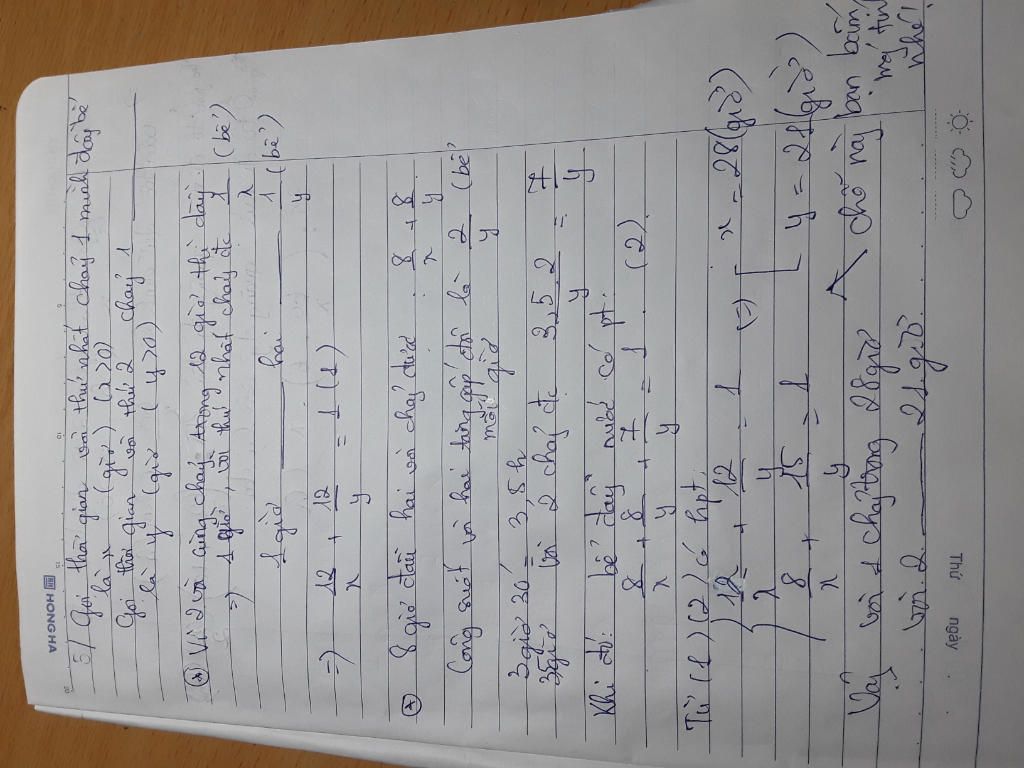 HONG HA
5/ Gọi thời gian vòi thứ nhất chảy 1 mình đầy bể
là x (giờ) (x>0)
Gọi thời gian vòi thứ 2 chảy 1
là y (giờ) (y>0)
(*) Vì 2 vòi cùng chảy trong 12 giờ thì đầy.
=> 1 giờ, vòi thứ nhất chảy đc 1/x (bể)
1 giờ hai 1/y (bể)
=> 12/x + 12/y = 1 (1)
(*) 8 giờ đầu hai vòi chảy được: 8/x + 8/y
Công suất vòi hai tăng gấp đôi là 2/y (bể
mỗi giờ
3 giờ 30' = 3,5 h
3,5 giờ vòi 2 chảy đc 3,5.2/y = 7/y
Khi đó: bể đầy nước có pt:
8/x + 8/y + 7/y = 1 (2)
Từ (1)(2) có hpt
{ 12/x + 12/y = 1 (=) [ x = 28 (giờ)
8/x + 15/y = 1 y = 21 (giờ)
Chỗ này bạn bấm
máy tính
nhé!
Vậy vòi 1 chảy trong 28 giờ
vòi 2 21 giờ.
Thứ ngày